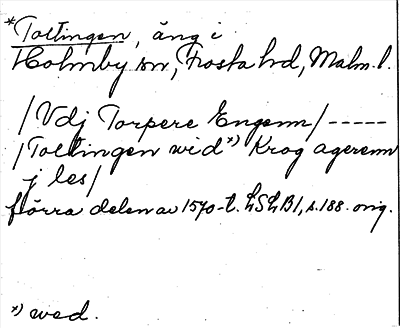 *Toltingen, äng i
Holmby sn, Frosta hd, Malm. l.
/Vdj Torpere Engenn/-----
/Toltingen wid *) Krog agerenn
j les/
förra delen av 1570-t. LSLB1, s. 188. orig.
*) wed.